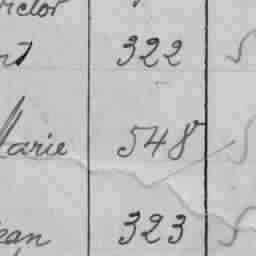 ictor
322
Marie 548
Jean 323